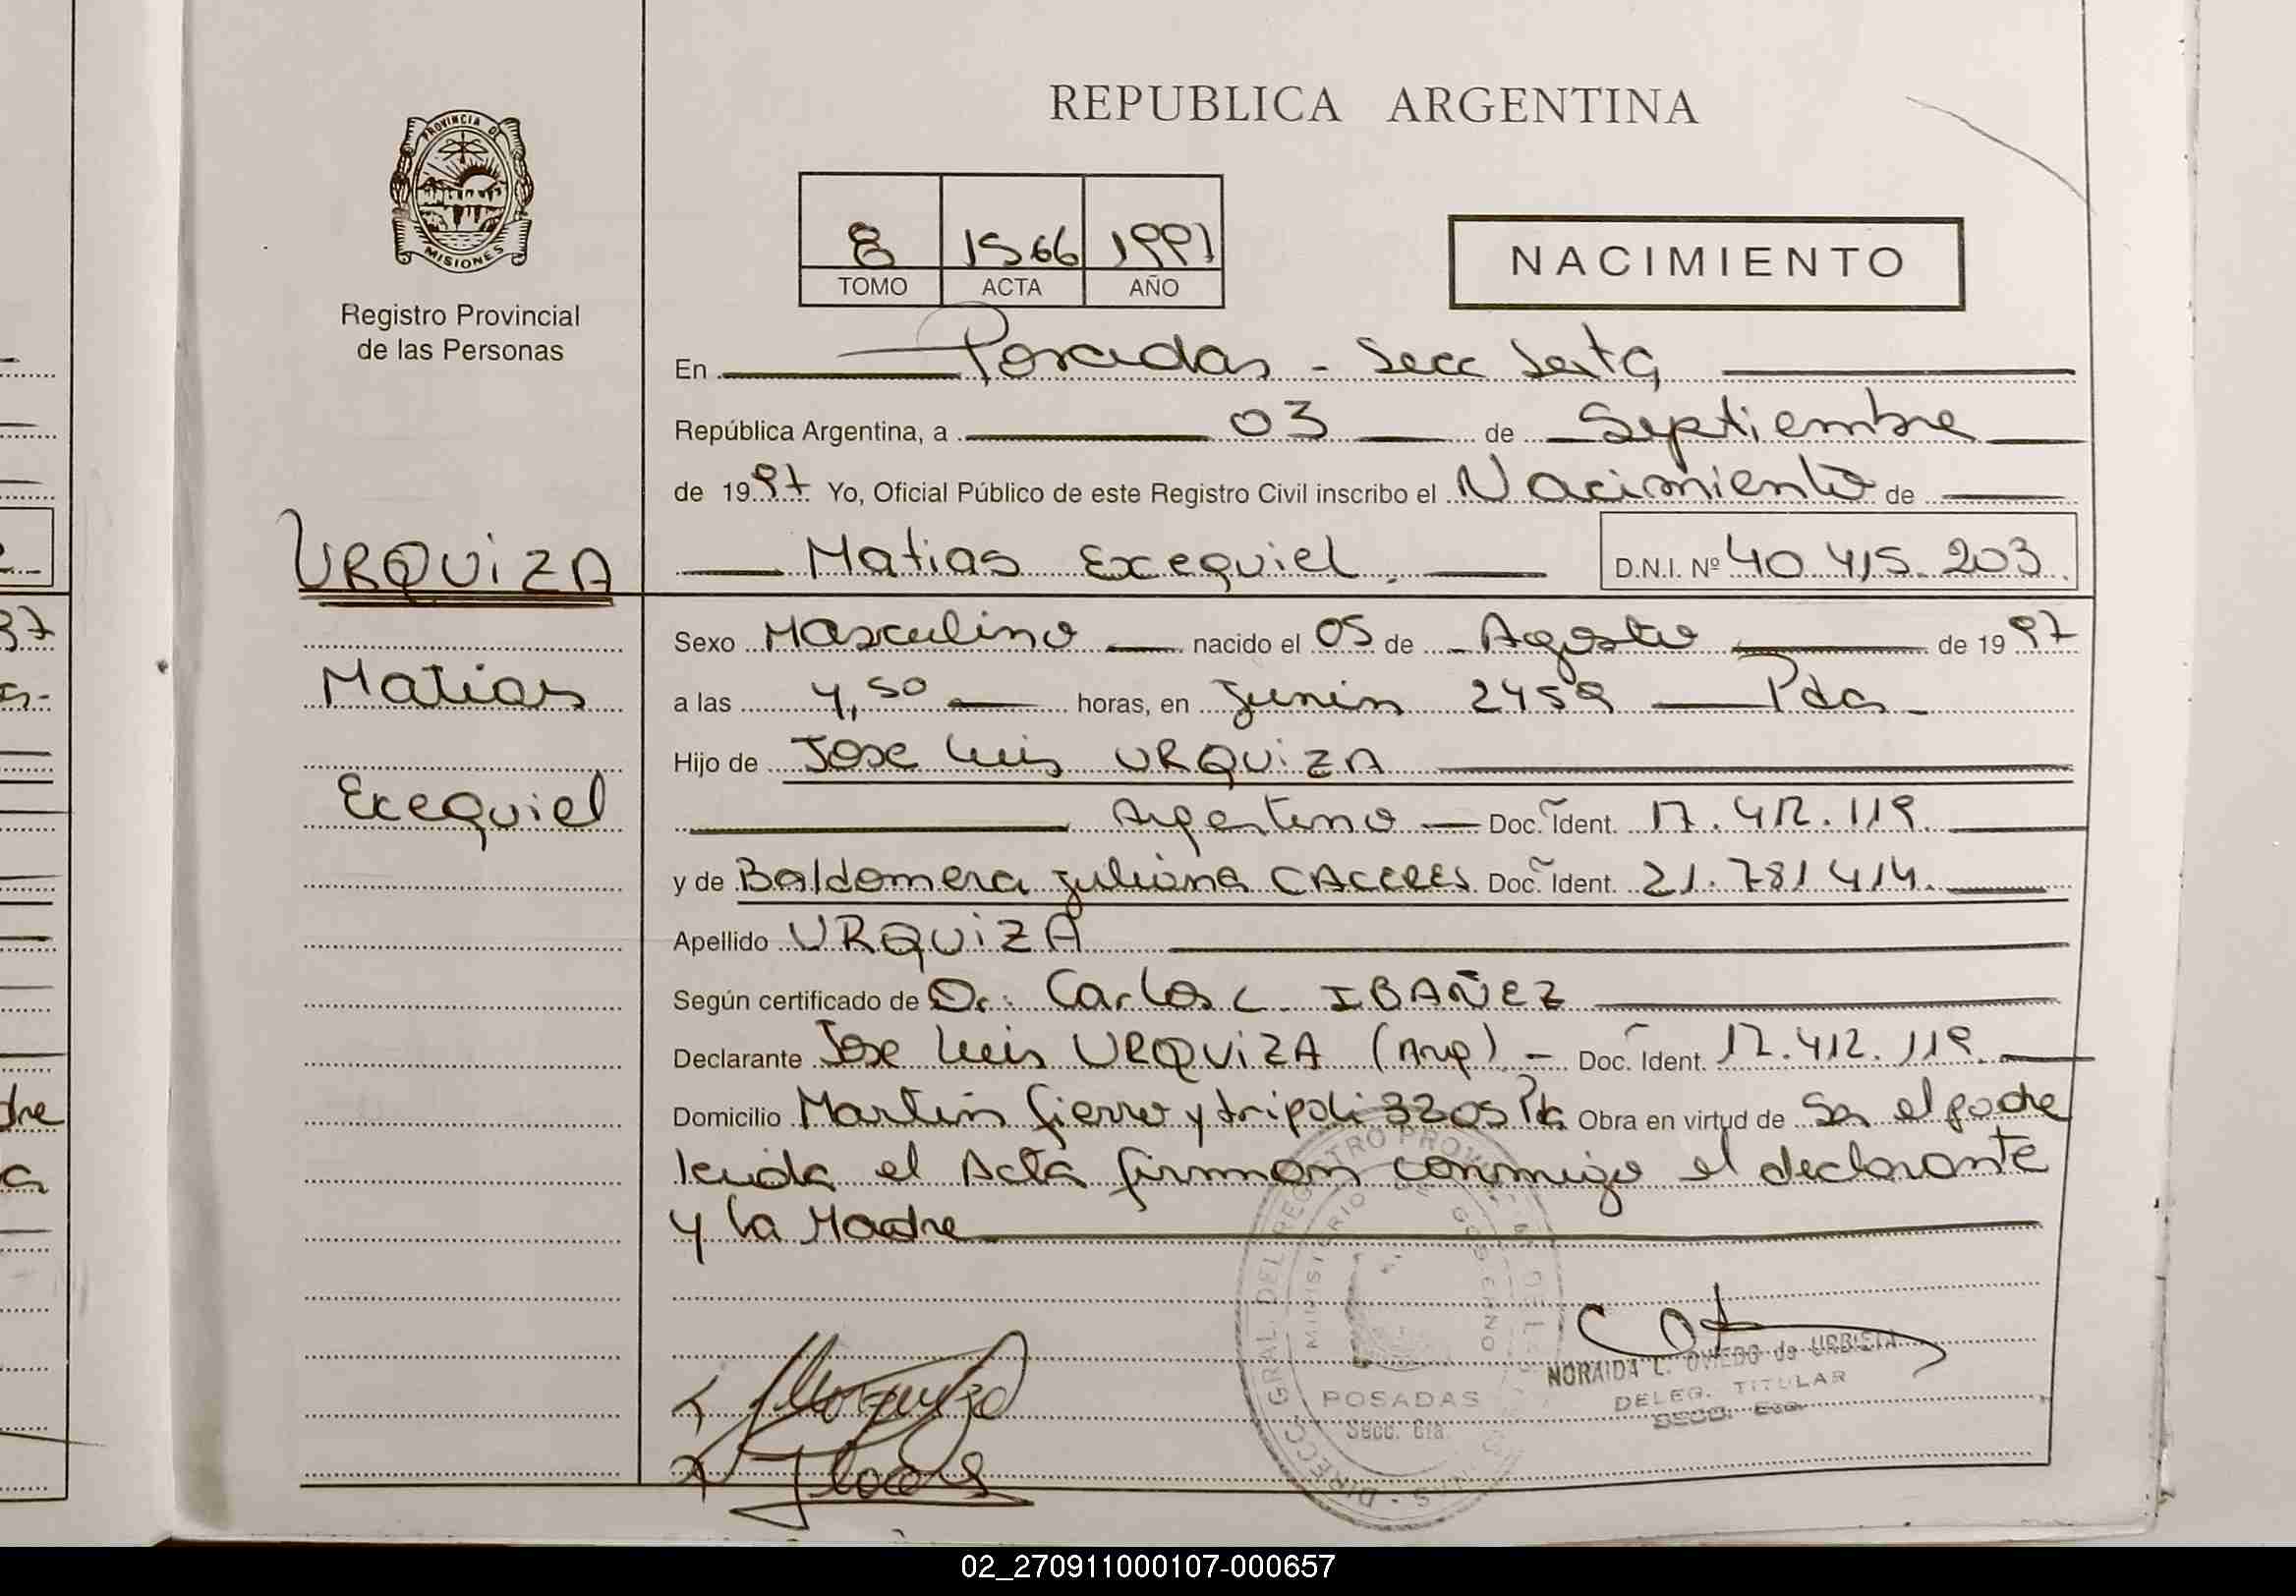 REPUBLICA ARGENTINA
PROVINCIA DE
MISIONES
Registro Provincial
de las Personas
8 1566 1997
TOMO ACTA AÑO
NACIMIENTO
En Posadas - Secc Sexta
República Argentina, a 03 de Septiembre
de 1997 Yo, Oficial Público de este Registro Civil inscribo el Nacimiento de
URQUIZA
Matias Exequiel. D.N.I. Nº 40 415.203.
Sexo Masculino nacido el 05 de Agosto de 1997
Matias
a las 4,50 horas, en Junin 2459 Pdas
Hijo de Jose Luis URQUIZA
Exequiel
Argentino Doc. Ident. 17.412.119.
y de Baldomera Juliana CACERES Doc. Ident. 21.781 414.
Apellido URQUIZA
Según certificado de Dr: Carlos L. IBAÑEZ
Declarante Jose Luis URQUIZA (Arg) - Doc. Ident. 17.412.119.
Domicilio Martin fierro y tripoli 3205 Obra en virtud de Ser el padre
leida el Acta firman conmigo el declarante
y la Madre
DIRECC. GRAL. DEL REGISTRO
MINISTERIO GOBIERNO
POSADAS
Secc. 6ta.
NORAIDA L. OVIEDO de URBIETA
DELEG. TITULAR
SECC. 6ta.
02_270911000107-000657